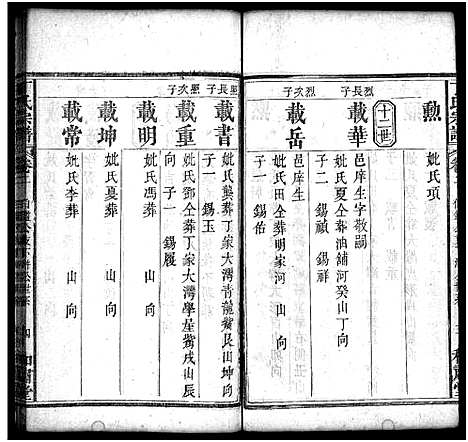 勲
妣氏項
十一世
烈長子
載華
邑庠生字敬嗣
妣氏夏仝葬油鋪河癸山丁向
子二 錫禎 錫祥
烈次子
載岳
邑庠生
妣氏田仝葬明家河 山 向
子一 錫佑
熙長子
載書
妣氏龔葬丁家大灣青龍嘴艮山坤向
子一 錫玉
熙次子
載重
妣氏鄧仝葬丁家大灣學屋嘴戌山辰
向 子一 錫履
載明
妣氏馮葬 山 向
載坤
妣氏夏葬 山 向
載常
妣氏李葬 山 向